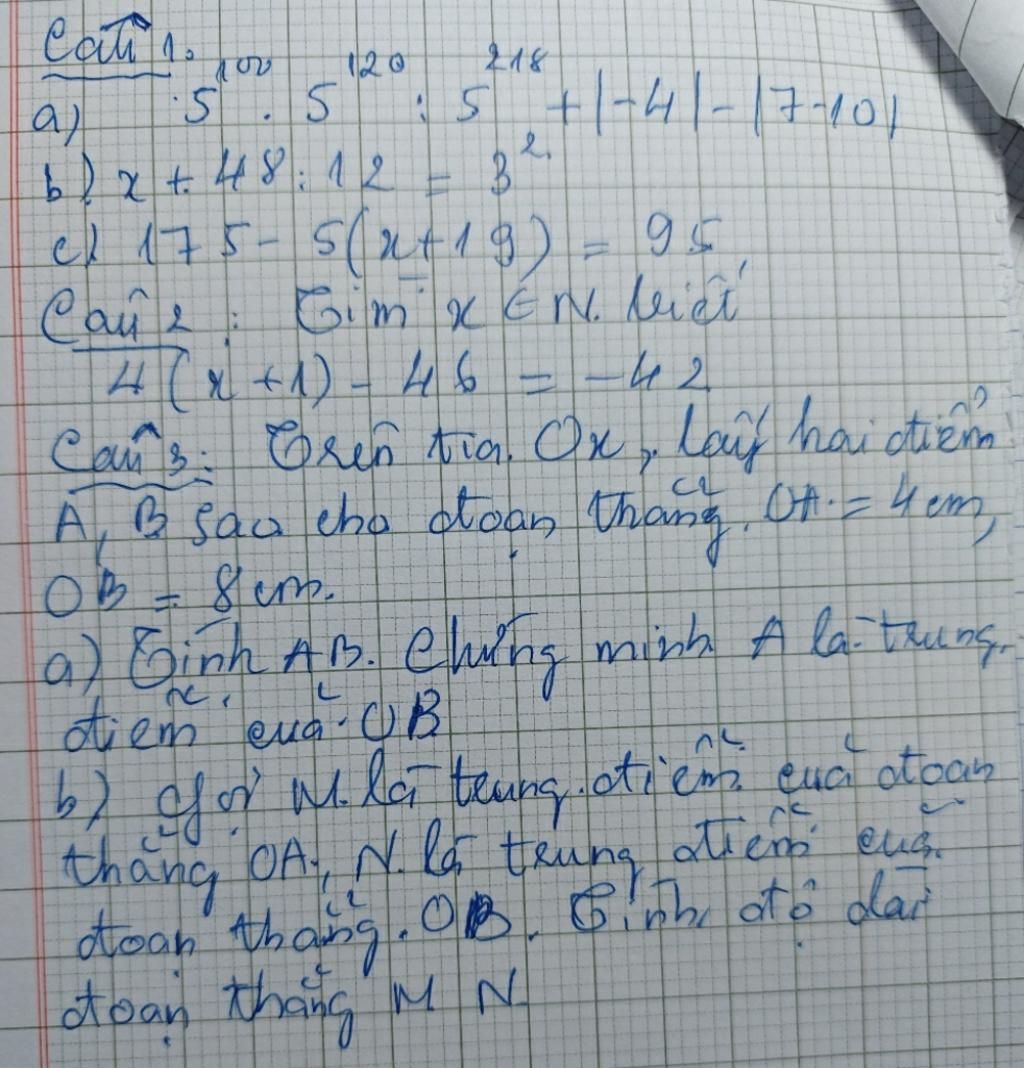 Câu 1:
a) 5¹⁰⁰ . 5¹²⁰ : 5²¹⁸ + |-4| - |7-10|
b) x + 48 : 12 = 3²
c) 175 - 5(x+19) = 95
Câu 2 : Tìm x ∈ N. biết
4(x+1) - 46 = -42
Câu 3: Trên tia Ox, lấy hai điểm
A, B sao cho đoạn thẳng OA = 4cm,
OB = 8cm.
a) Tính AB. Chứng minh A là trung
điểm của OB
b) Gọi M là trung điểm của đoạn
thẳng OA, N là trung điểm của
đoạn thẳng OB. Tính độ dài
đoạn thẳng MN